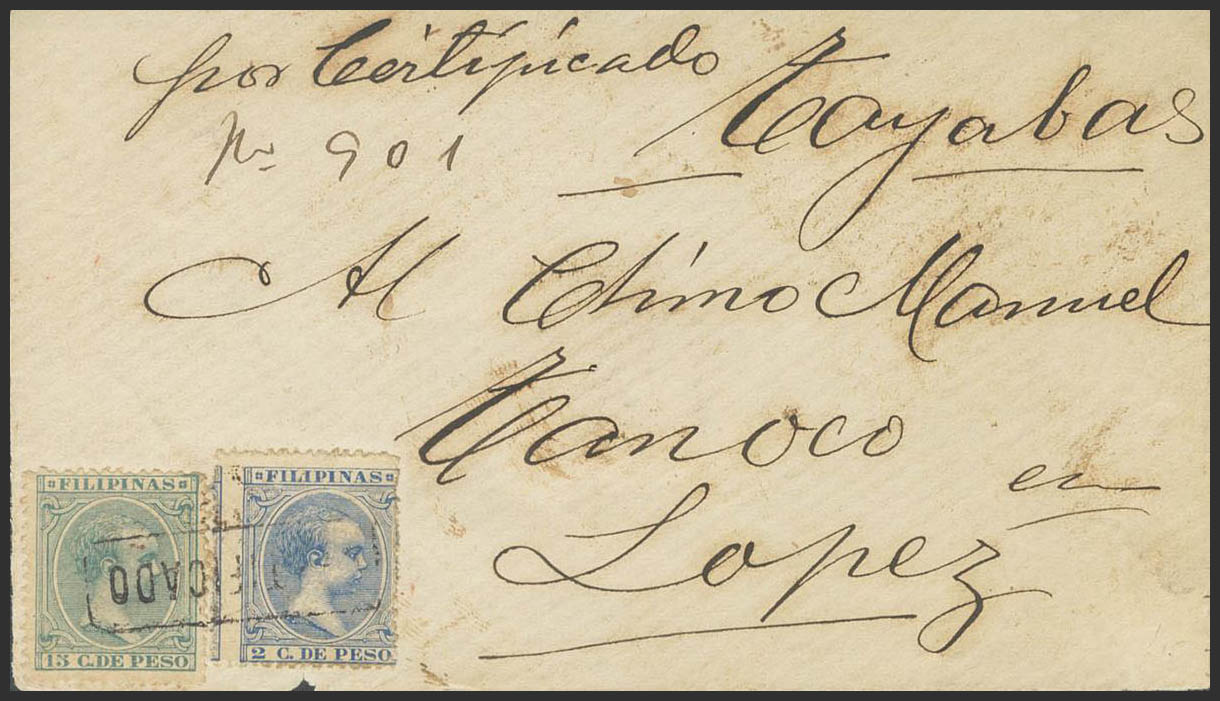 por Certificado
Tayabas
No 901
Al Chino Manuel
Tanoco
en
Lopez
FILIPINAS
15 C. DE PESO
FILIPINAS
2 C. DE PESO
FICADO